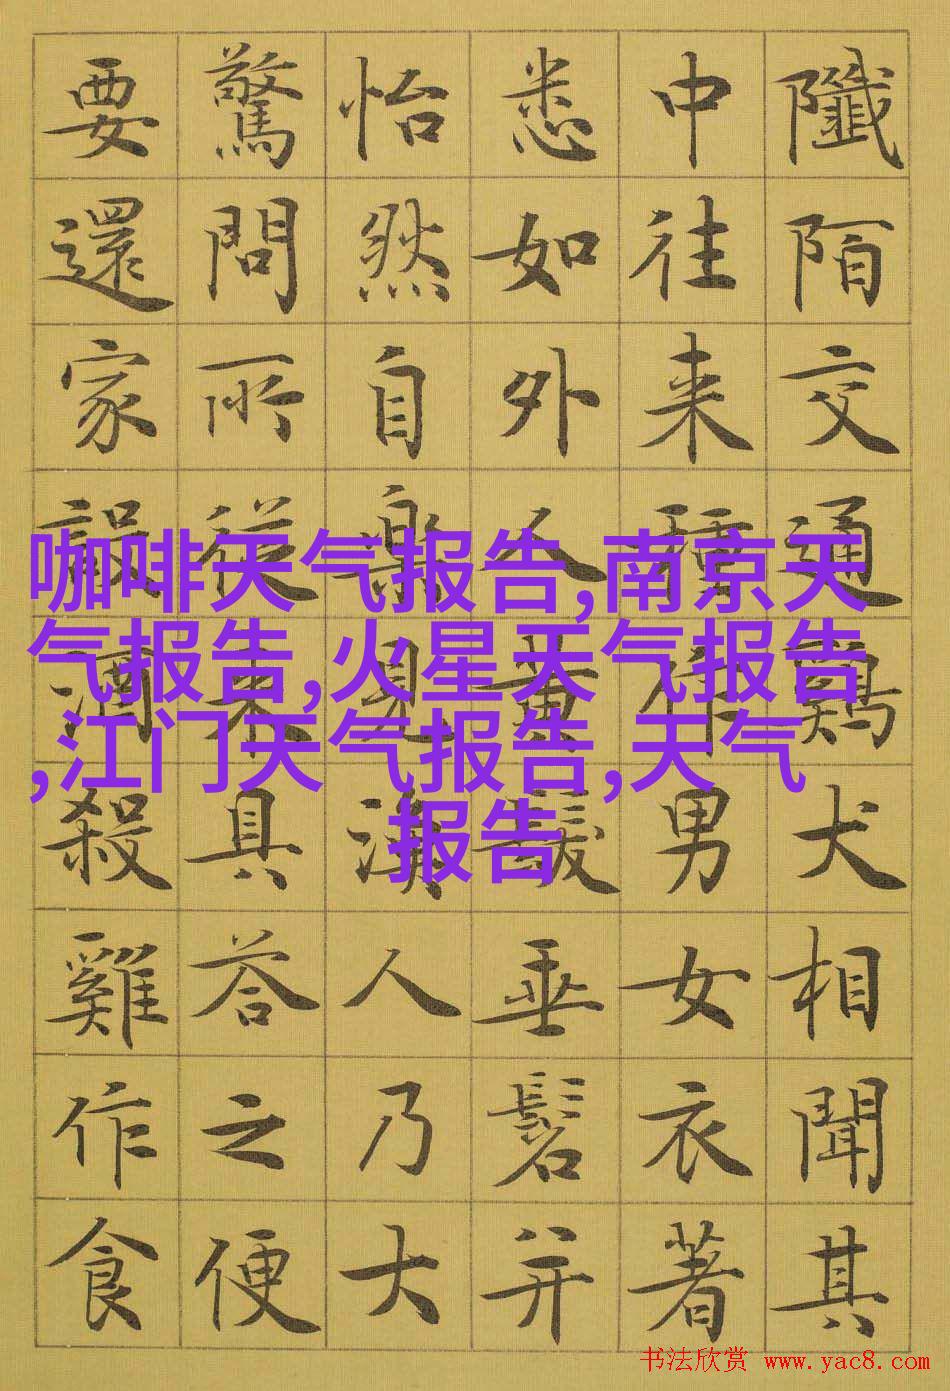 陌交通鷄犬相聞其
中往来種作男女衣著
悉如外人黄髮垂髫并
怡然自樂見漁人乃大
驚問所從来具答之便
要還家設酒殺雞作食
咖啡天气报告,南京天
气报告,火星天气报告
,江门天气报告,天气
报告
书法欣赏 www.yac8.com